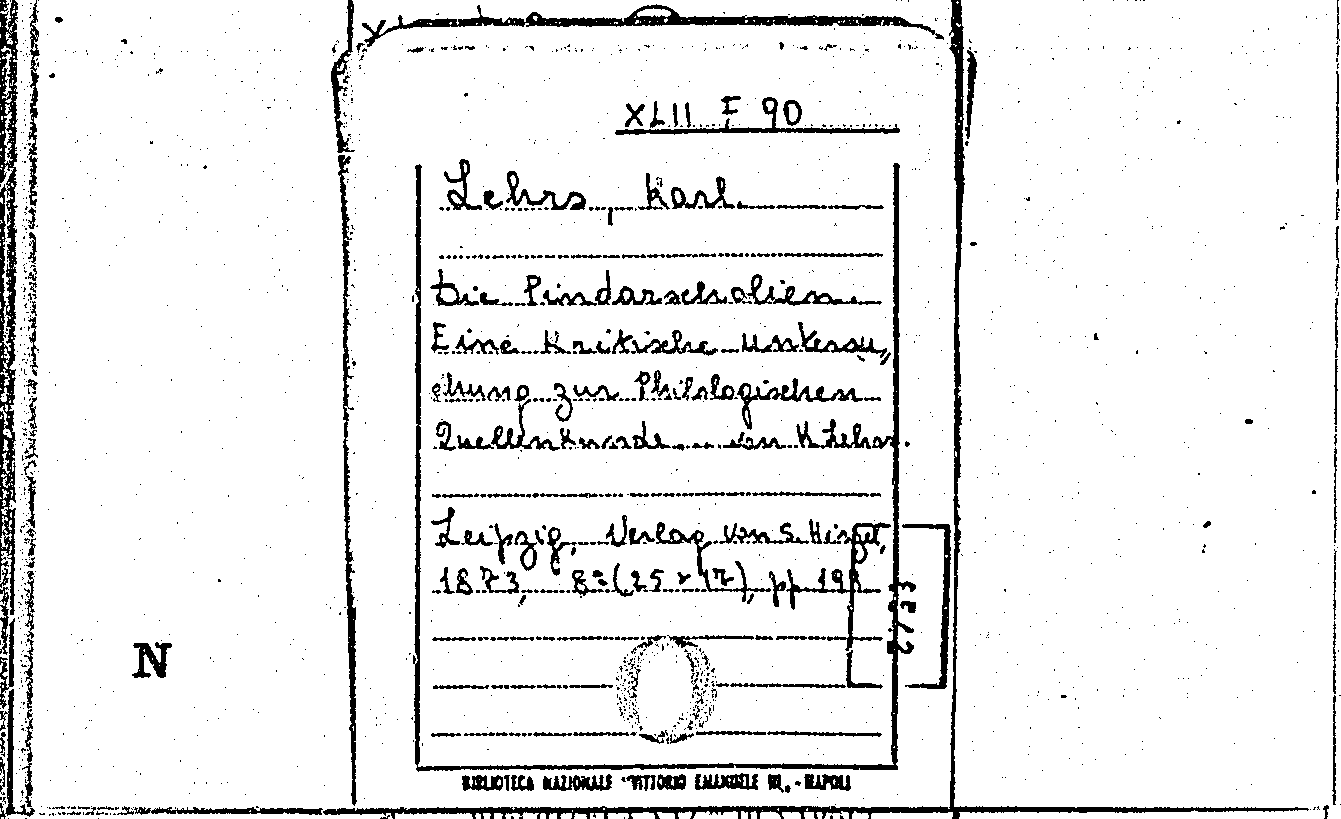 XLII F 90
Lehrs, Karl.
Die Pindarscholien.
Eine Kritische untersu„
chung zur Philologischen
Quellenkunde... von K. Lehrs.
Leipzig, Verlag von S. Hirzel,
1873, 8º (25 x 17), pp 198
N
BIBLIOTECA NAZIONALE "VITTORIO EMANUELE III. - NAPOLI